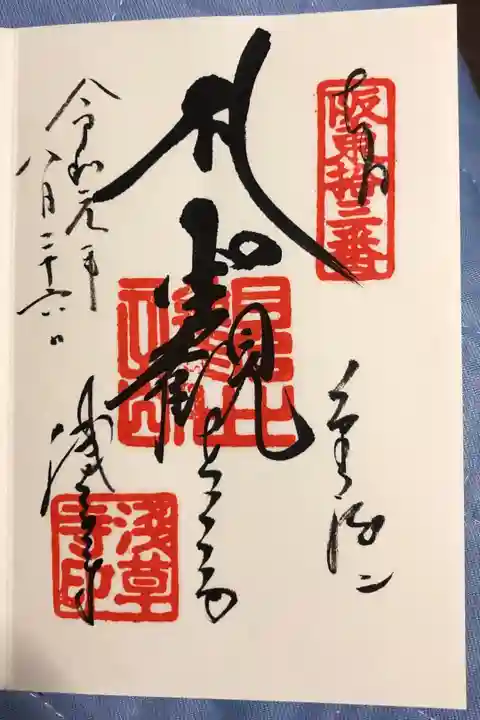 奉拝
坂東拾三番
金龍山
聖観世音
令和元年
八月二十六日
浅草寺
淺草
寺印